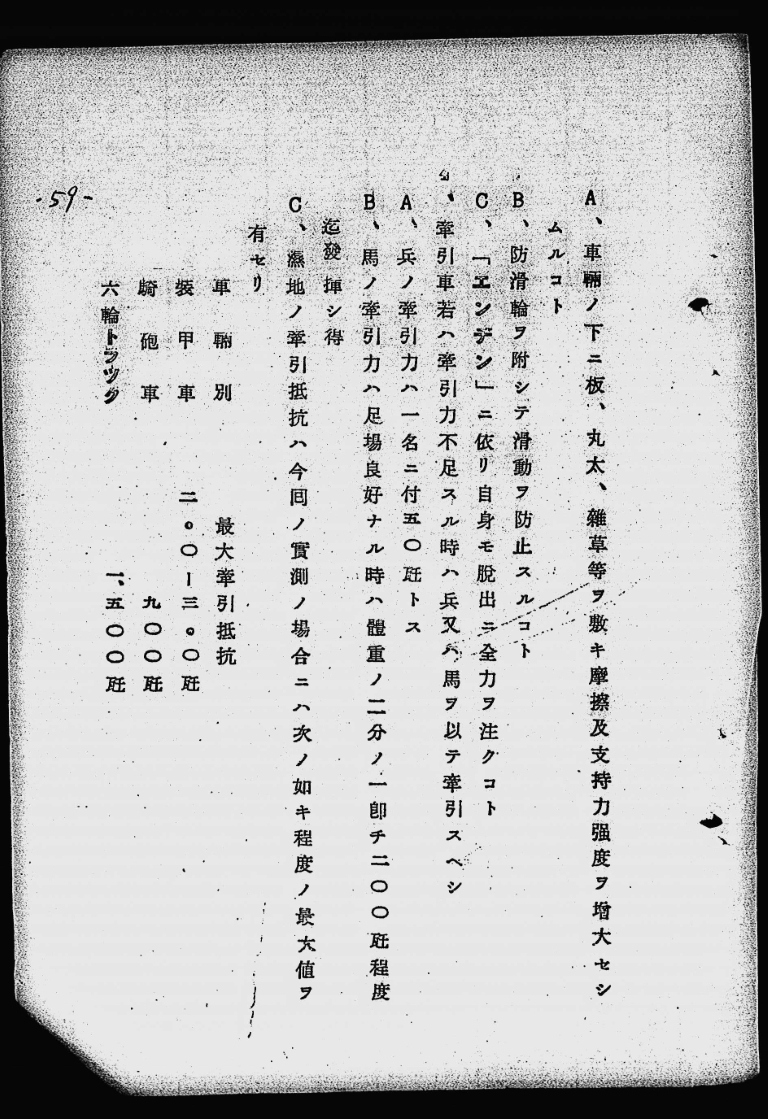 -59-
A、車輛ノ下ニ板、丸太、雜草等ヲ敷キ摩擦及支持力强度ヲ增大セシ
ムルコト
B、防滑輪ヲ附シテ滑動ヲ防止スルコト
C、「エンヂン」ニ依リ自身モ脫出ニ全力ヲ注クコト
、牽引車若ハ牽引力不足スル時ハ兵又ハ馬ヲ以テ牽引スヘシ
A、兵ノ牽引力ハ一名ニ付五〇瓩トス
B、馬ノ牽引力ハ足場良好ナル時ハ體重ノ二分ノ一卽チ二〇〇瓩程度
迄發揮シ得
C、濕地ノ牽引抵抗ハ今囘ノ實測ノ場合ニハ次ノ如キ程度ノ最大値ヲ
有セリ
車輛別 最大牽引抵抗
裝甲車 二。〇ー三。〇瓩
騎砲車 九〇〇瓩
六輪トラック 一、五〇〇瓩